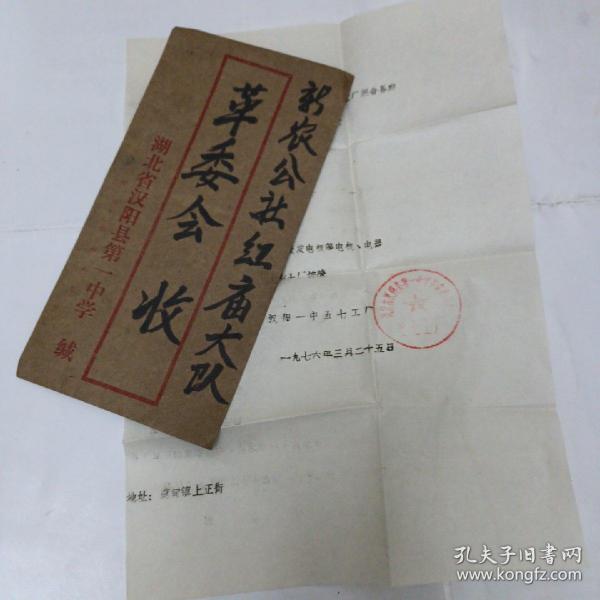 新农公社红庙大队
革委会 收
湖北省汉阳县第一中学 缄
发电机等电机、电器
汉阳一中五七工厂
一九七六年三月二十五日
地址：蔡甸镇上正街
孔夫子旧书网
www.kongfz.com